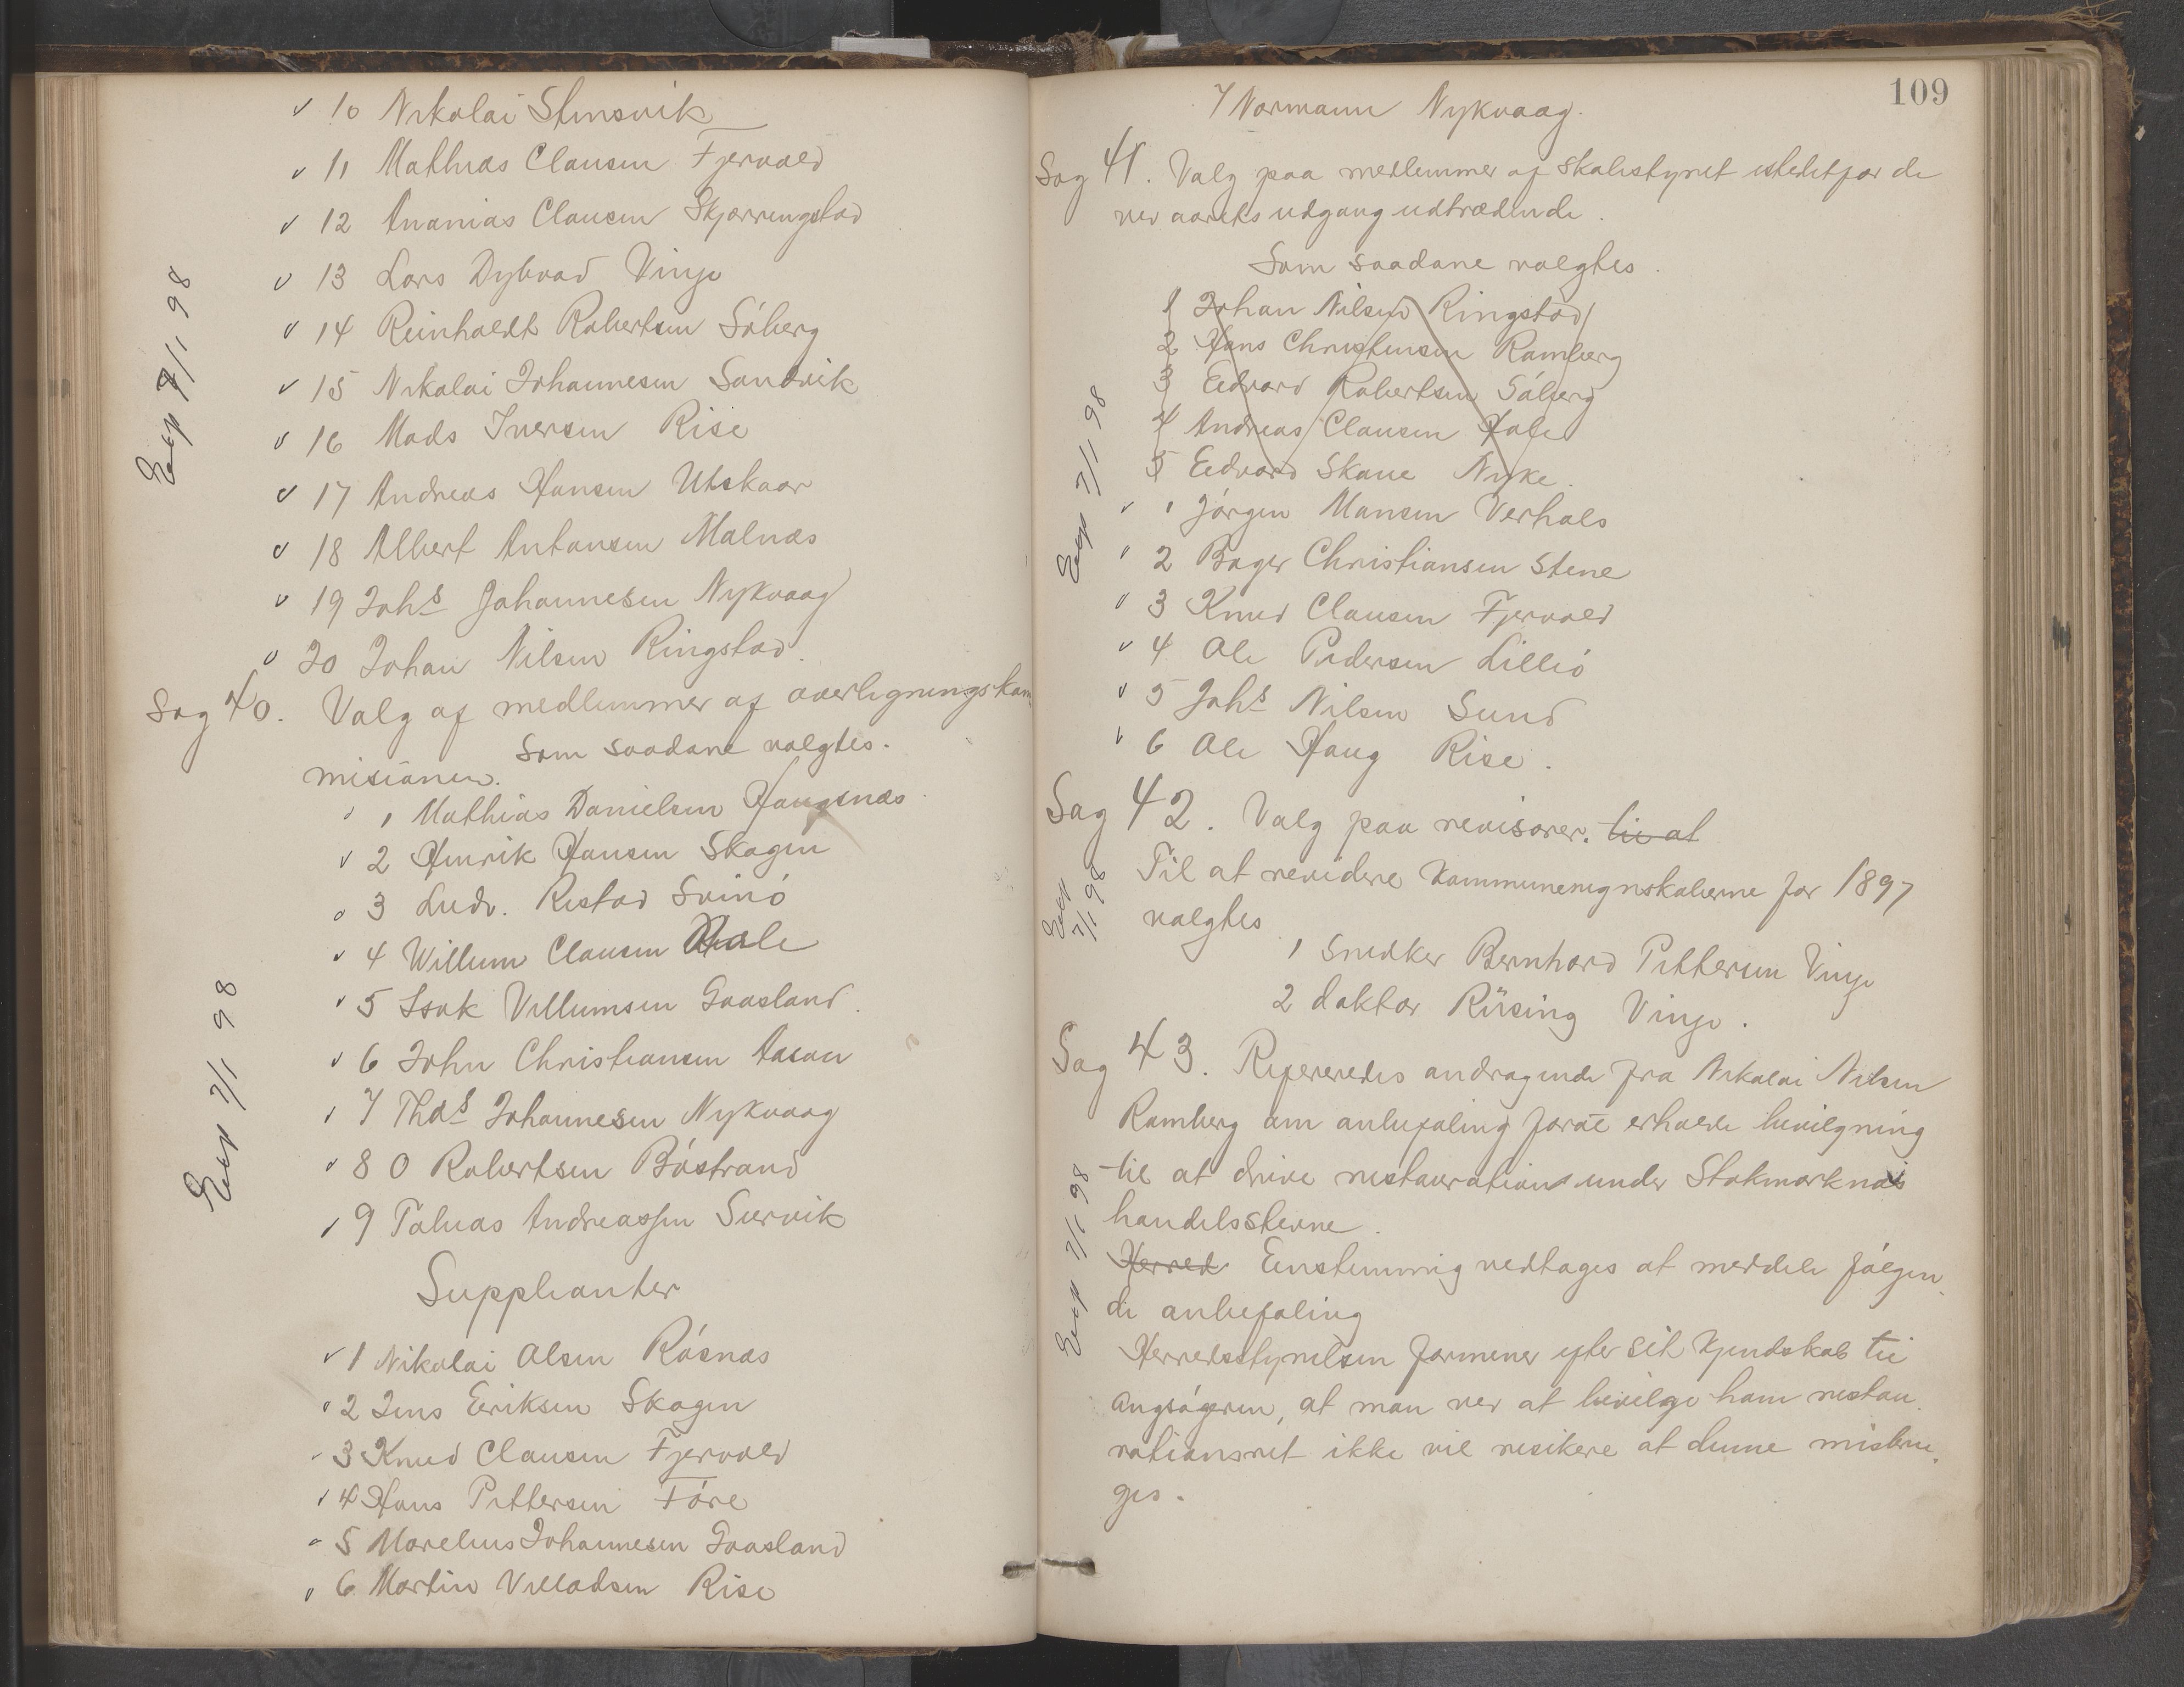 v 10 Nikolai Stensvik
v 11 Mathias Clausen Fjervold
v 12 Ananias Clausen Skjærringstad
v 13 Lars Dybvad Vinje
v 14 Reinholdt Robertsen Søberg
v 15 Nikolai Johannesen Sandvik
v 16 Mads Iversen Rise
v 17 Andreas Hansen Utskaar
v 18 Albert Antonsen Malnæs
v 19 Johs Johannesen Nykvaag
v 20 Johan Nilsen Ringstad.
Exp 7/1 98
Sag 40. Valg af medlemmer af overligningskom
misionen. Som saadane valgtes.
v 1 Mathias Danielsen Haugsnæs
v 2 Henrik Hansen Skagen
v 3 Ludv. Ristad Svinó
v 4 Willum Clausen Hole
v 5 Isak Villumsen Gaasland.
v 6 John Christiansen Aasan
v 7 Ths Johannesen Nykvaag
v 8 O Robertsen Bóstrand
v 9 Tobias Andreassen Survik
Exp 7/1 98
Supplianter
v 1 Nikolai Olsen Rósnæs
v 2 Jens Eriksen Skagen
v 3 Knud Clausen Fjervold
v 4 Hans Pettersen Fóre
v 5 Marelius Johannesen Gaasland
v 6 Martin Villadsen Rise
109
7 Normann Nykvaag.
Sag 41. Valg paa medlemmer af skolestyret istedetfor de
ved aarets udgang udtrædende.
Som saadane valgtes.
1 Johan Nilsen Ringstad
2 Hans Christensen Ramberg
3 Edvard Robertsen Sóberg
4 Andreas Clausen Hole
5 Edvard Skaue Nyke.
v 1 Jórgen Mansen Verhals
v 2 Boger Christiansen Stene
v 3 Knud Clausen Fjervold
v 4 Ole Pedersen Lilleó
v 5 Johs Nilsen Sund
v 6 Ole Haug Rise.
Exp 7/1 98
Sag 42. Valg paa revisorer. til at
Til at revidere kommuneregnskaberne for 1897
valgtes
Exp 7/1 98
1 snedker Bernhard Pettersen Vinje
2 doktor Rüsing Vinje.
Sag 43. Refereredes andragende fra Nikolai Nilsen
Ramberg om anbefaling forat erholde bevilgning
til at drive restauration under Stokmarknæs
handelsstevne.
Herred Enstemmig vedtages at meddele fólgen
de anbefaling
Herredsstyrelsen formener efter sit kjendskab til
angsógeren, at man ved at bevilge ham restau
rationsret ikke vil resikere at denne misbru
ges.
Exp 7/1 98